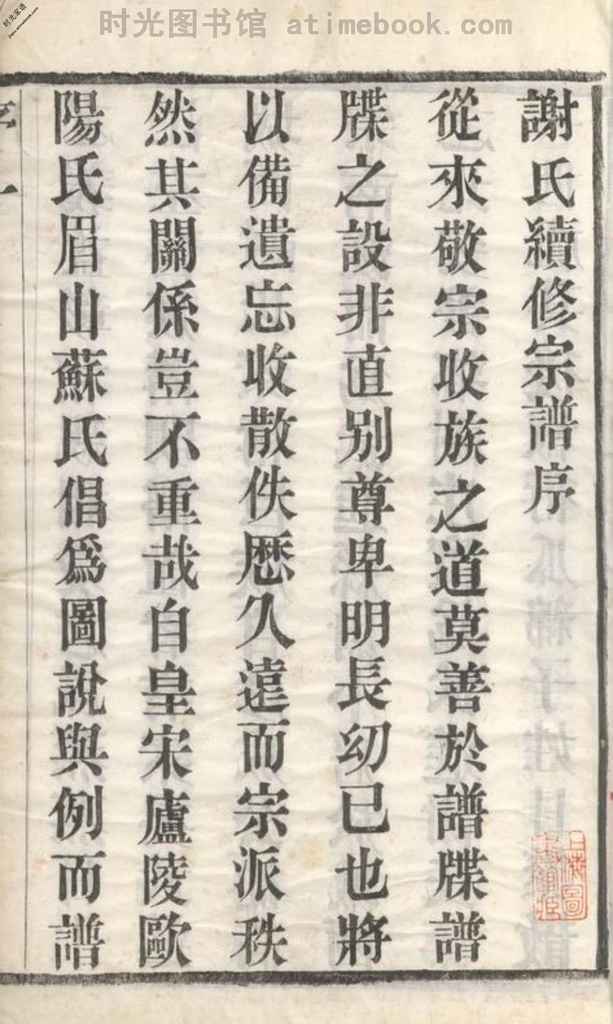 时光图书馆 atimebook.com
謝氏續修宗譜序
從來敬宗收族之道莫善於譜牒譜
牒之設非直别尊卑明長幼已也將
以備遺忘收散佚厯久遠而宗派秩
然其關係豈不重哉自皇宋廬陵歐
陽氏眉山蘇氏倡為圖說與例而譜